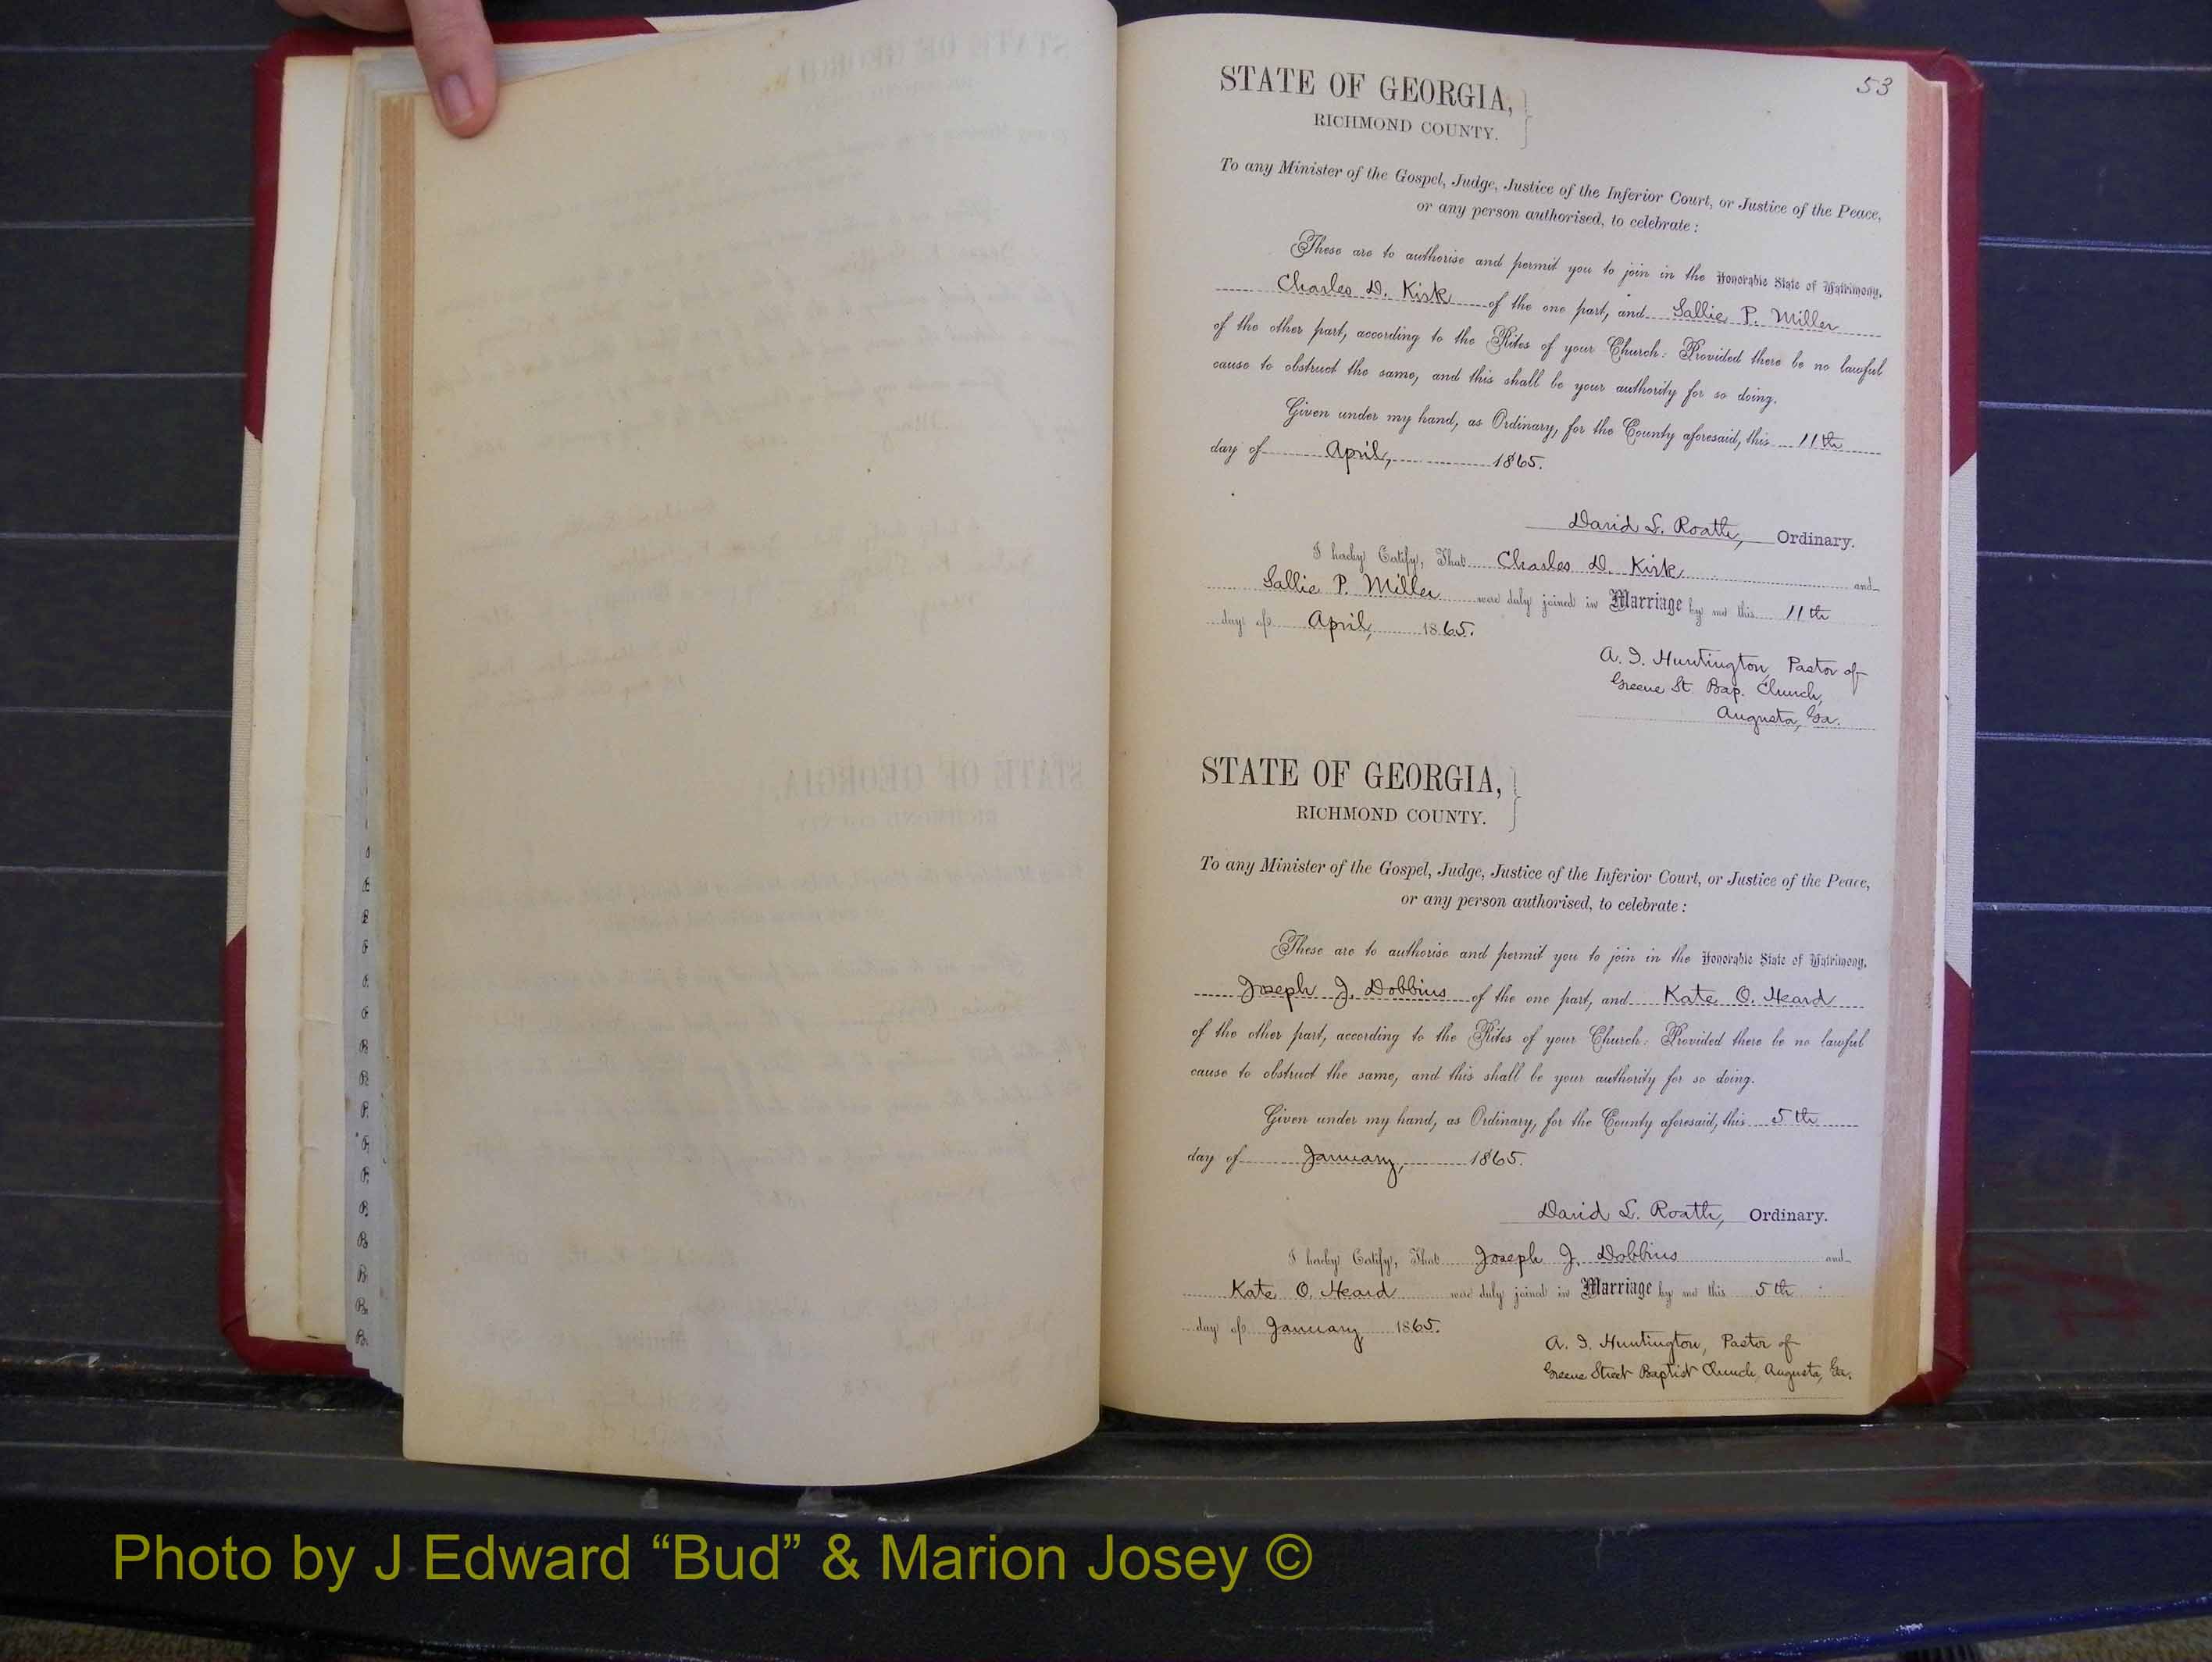 53
STATE OF GEORGIA,
RICHMOND COUNTY.
To any Minister of the Gospel, Judge, Justice of the Inferior Court, or Justice of the Peace,
or any person authorised, to celebrate:
These are to authorise and permit you to join in the Honorable State of Matrimony,
Charles D. Kirk of the one part, and Sallie P. Miller
of the other part, according to the Rites of your Church: Provided there be no lawful
cause to obstruct the same, and this shall be your authority for so doing.
Given under my hand, as Ordinary, for the County aforesaid, this 11th
day of April, 1865.
David L. Roath, Ordinary.
I hereby Certify, That Charles D. Kirk and
Sallie P. Miller were duly joined in Marriage by me this 11th
day of April, 1865.
A. I. Huntington, Pastor of
Greene St. Bap. Church,
Augusta, Ga.
STATE OF GEORGIA,
RICHMOND COUNTY.
To any Minister of the Gospel, Judge, Justice of the Inferior Court, or Justice of the Peace,
or any person authorised, to celebrate:
These are to authorise and permit you to join in the Honorable State of Matrimony,
Joseph J. Dobbins of the one part, and Kate O. Heard
of the other part, according to the Rites of your Church: Provided there be no lawful
cause to obstruct the same, and this shall be your authority for so doing.
Given under my hand, as Ordinary, for the County aforesaid, this 5th
day of January, 1865.
David L. Roath, Ordinary.
I hereby Certify, That Joseph J. Dobbins and
Kate O. Heard were duly joined in Marriage by me this 5th
day of January 1865.
A. I. Huntington, Pastor of
Greene Street Baptist Church, Augusta, Ga.
Photo by J Edward “Bud” & Marion Josey ©